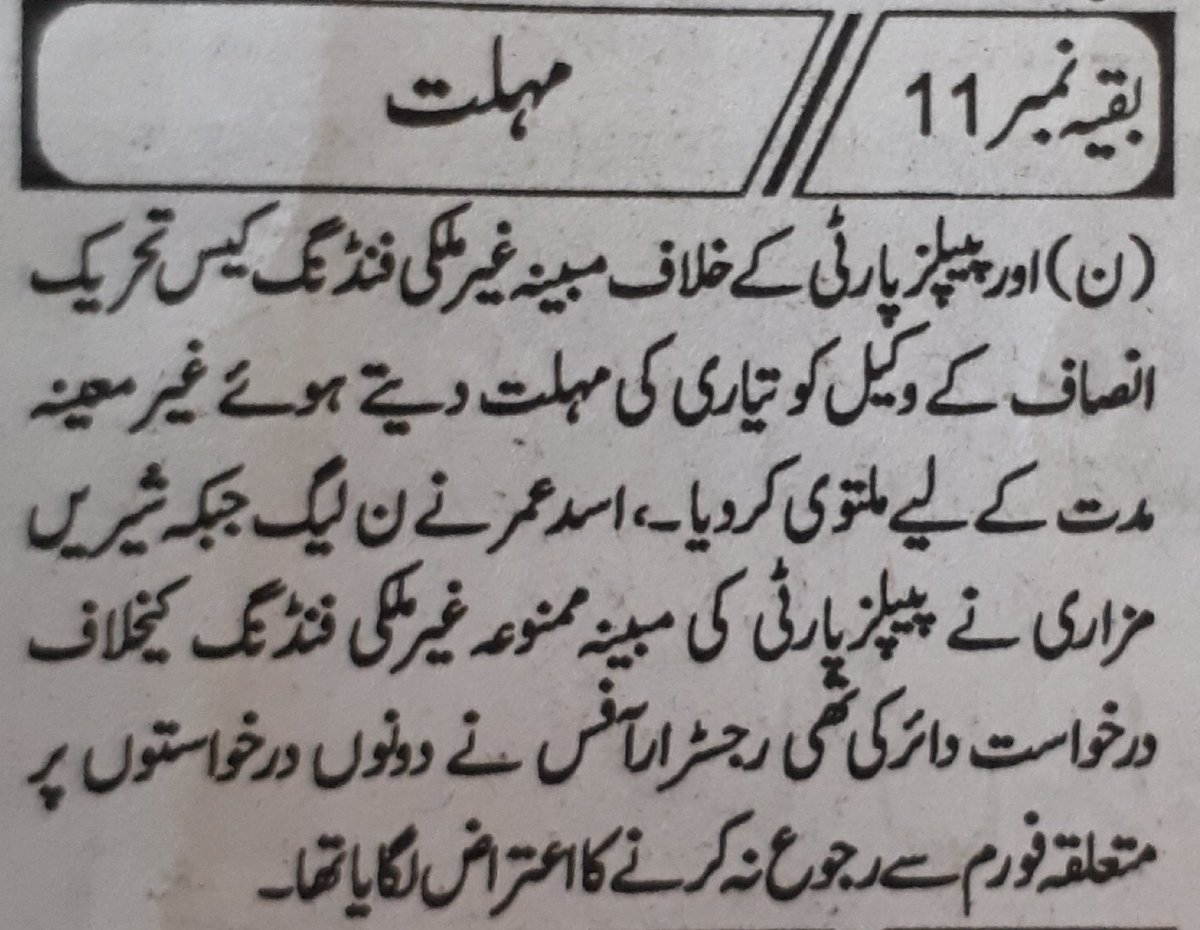 بقیہ نمبر 11 مہلت
(ن) اور پیپلز پارٹی کے خلاف مبینہ غیر ملکی فنڈنگ کیس تحریک
انصاف کے وکیل کو تیاری کی مہلت دیتے ہوئے غیر معینہ
مدت کے لیے ملتوی کردیا۔، اسد عمر نے ن لیگ جبکہ شیریں
مزاری نے پیپلز پارٹی کی مبینہ ممنوعہ غیر ملکی فنڈنگ کیخلاف
درخواست دائر کی تھی رجسٹرار آفس نے دونوں درخواستوں پر
متعلقہ فورم سے رجوع نہ کرنے کا اعتراض لگایا تھا۔